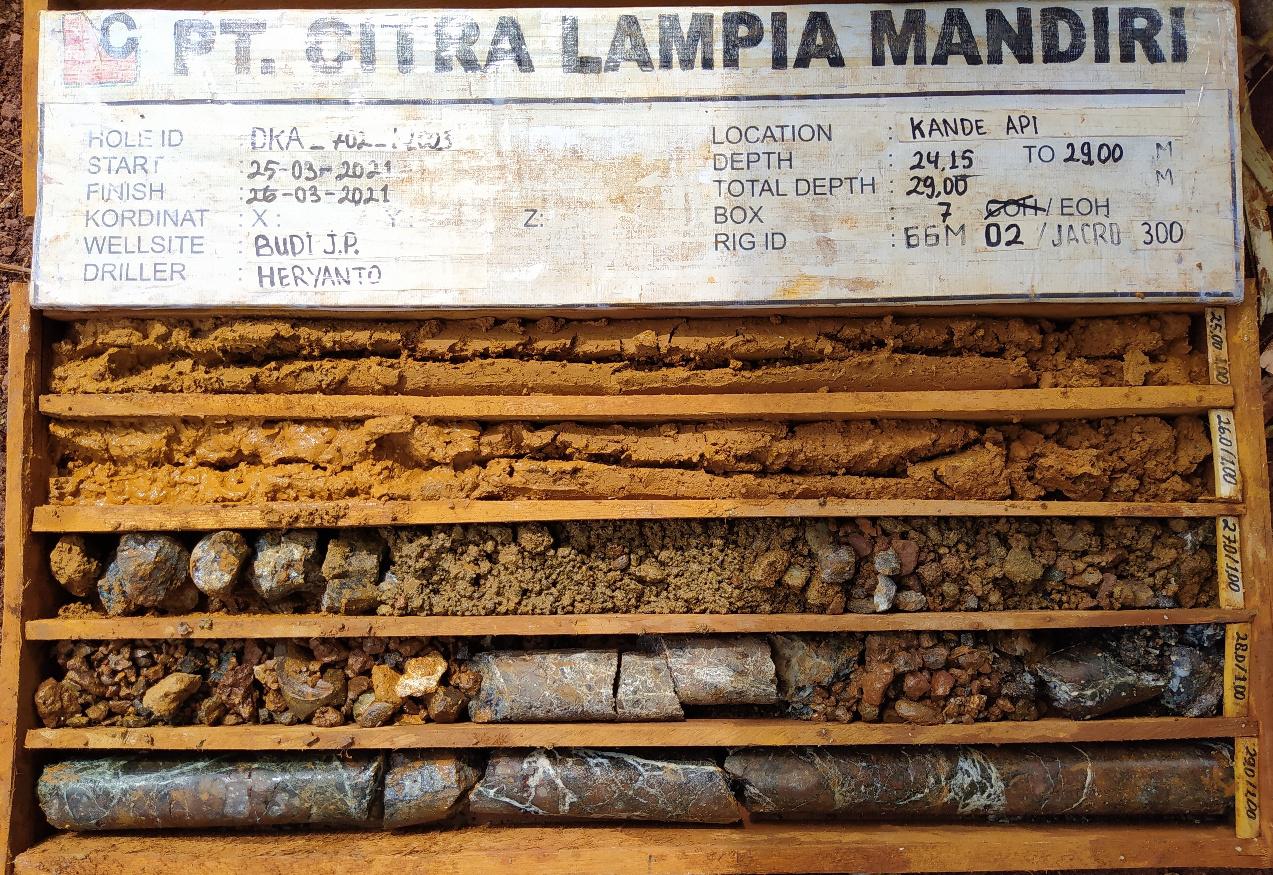 C PT. CITRA LAMPIA MANDIRI
HOLE ID DKA_702_
START 25-03-2021
FINISH 26-03-2021
KORDINAT : X : Y : Z:
WELLSITE : BUDI J.P.
DRILLER : HERYANTO
LOCATION : KANDE API
DEPTH : 24,15 TO 29,00 M
TOTAL DEPTH : 29,00 M
BOX : 7 COH / EOH
RIG ID : GGM 02 / JACRO 300
25.0 / 1.00
26.0 / 1.00
27.0 / 1.00
28.0 / 1.00
29.0 / 1.00